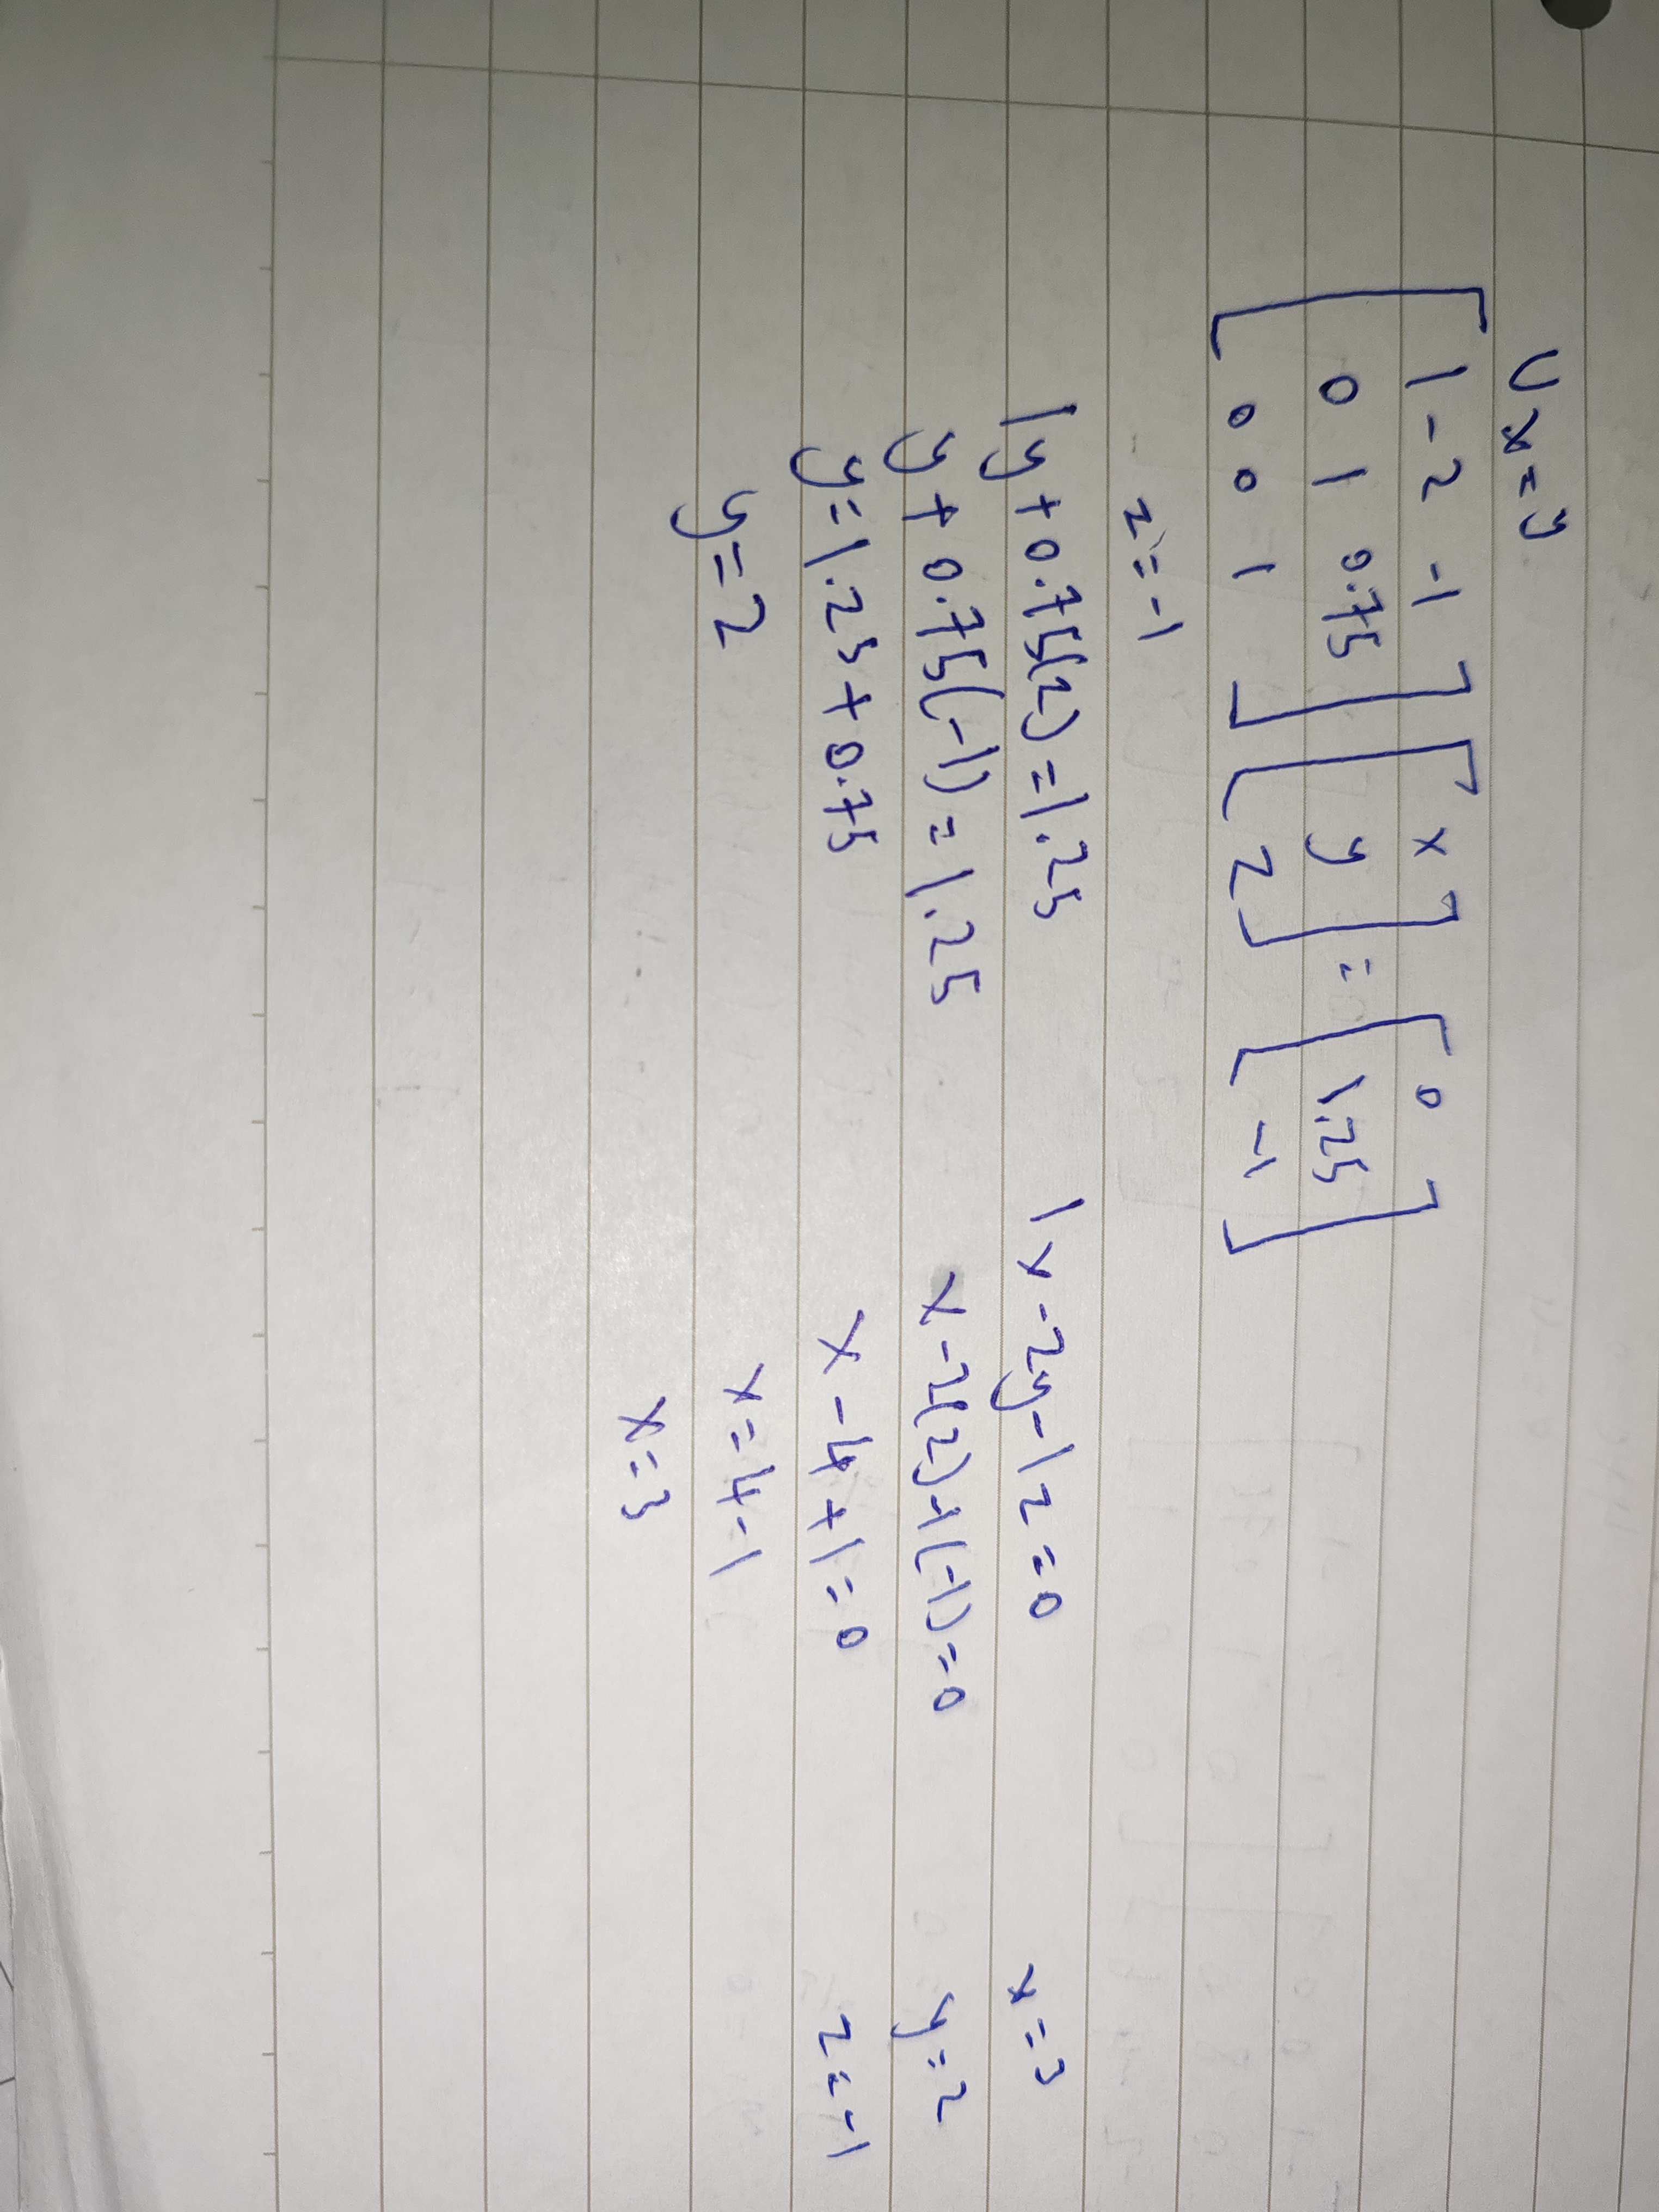 Ux=y
[ 1 -2 -1 ] [ x ] [ 0 ]
[ 0 1 0.75 ] [ y ] = [ 1.25 ]
[ 0 0 1 ] [ z ] [ -1 ]
z=-1
1y+0.75(z)=1.25
y+0.75(-1)=1.25
y=1.25+0.75
y=2
1x-2y-1z=0
x-2(2)-1(-1)=0
x-4+1=0
x=4-1
x=3
x=3
y=2
z=-1